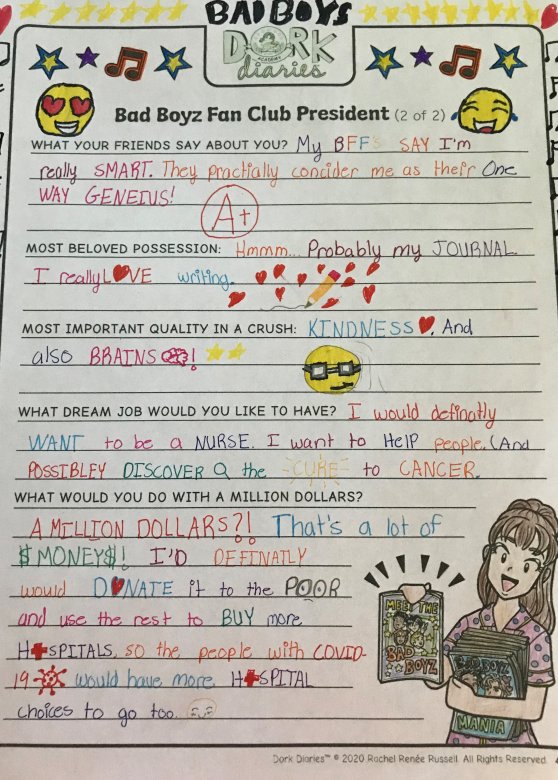 BAD BOYS
DORK
ACADEMY
diaries
Bad Boyz Fan Club President (2 of 2)
WHAT YOUR FRIENDS SAY ABOUT YOU? My BFF's SAY I'm
really SMART. They practially concider me as their One
WAY GENEIUS!
A+
MOST BELOVED POSSESSION: Hmmm... Probably my JOURNAL.
I really LOVE writing.
MOST IMPORTANT QUALITY IN A CRUSH: KINDNESS. And
also BRAINS!
WHAT DREAM JOB WOULD YOU LIKE TO HAVE? I would definatly
WANT to be a NURSE. I want to HelP people. (And
POSSIBLEY DISCOVER a the CURE to CANCER.
WHAT WOULD YOU DO WITH A MILLION DOLLARS?
A MILLION DOLLARS?! That's a lot of
$MONEY$! I'D DEFINATLY
would DONATE it to the POOR
and use the rest to BUY more
HOSPITALS, so the people with COVID-
19 would have more HOSPITAL
choices to go too.
MEET THE
BAD
BOYZ
BAD BOYZ
MANIA
Dork Diaries™ © 2020 Rachel Renée Russell. All Rights Reserved.